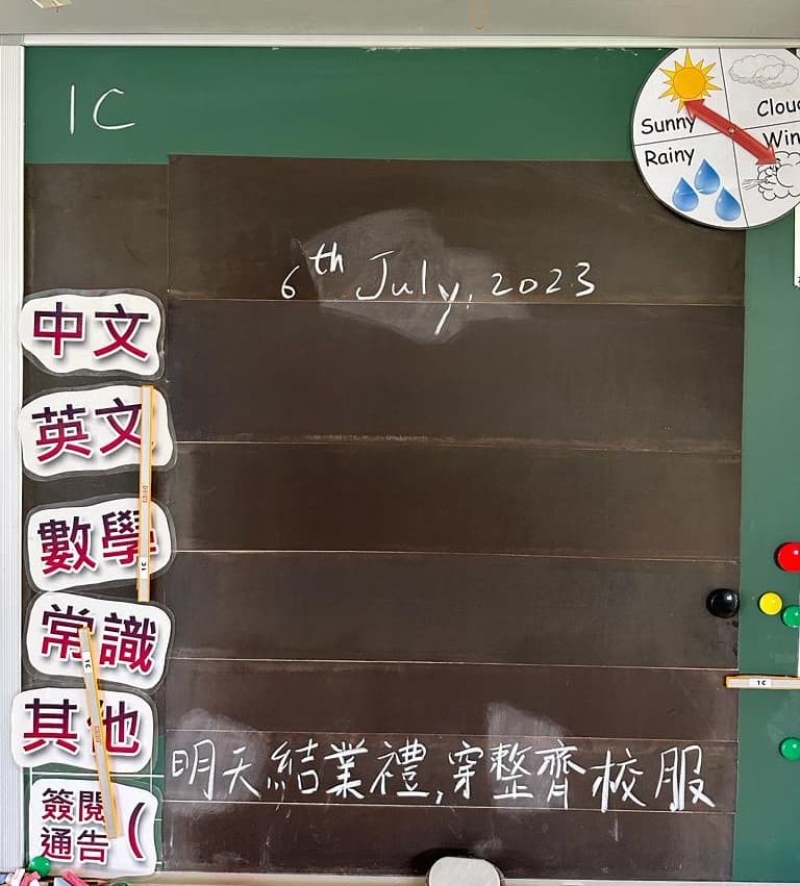 1C
Sunny
Clou
Rainy
Win
6th July, 2023
中文
英文
數學
常識
其他
明天結業禮,穿整齊校服
簽閱
通告 (
1C
1C
1C